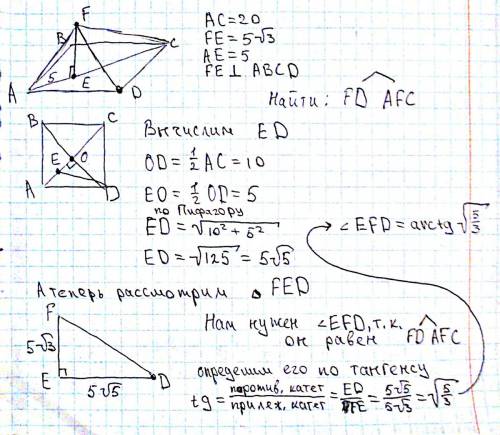 F
B
C
5
E
A
D
AC=20
FE=5√3
AE=5
FE⊥ABCD
Найти: FD^AFC
B
C
E
O
A
D
Вычислим ED
OD=1/2 AC=10
EO=1/2 OD=5
по Пифагору
ED=√(10²+5²)
ED=√125=5√5
∠EFD=arctg√(5/3)
А теперь рассмотрим △FED
F
5√3
E
5√5
D
Нам нужен ∠EFD, т.к.
он равен FD^AFC
определим его по тангенсу
tg=паротив. катет/прилеж. катет=ED/FE=5√5/5√3=√(5/3)